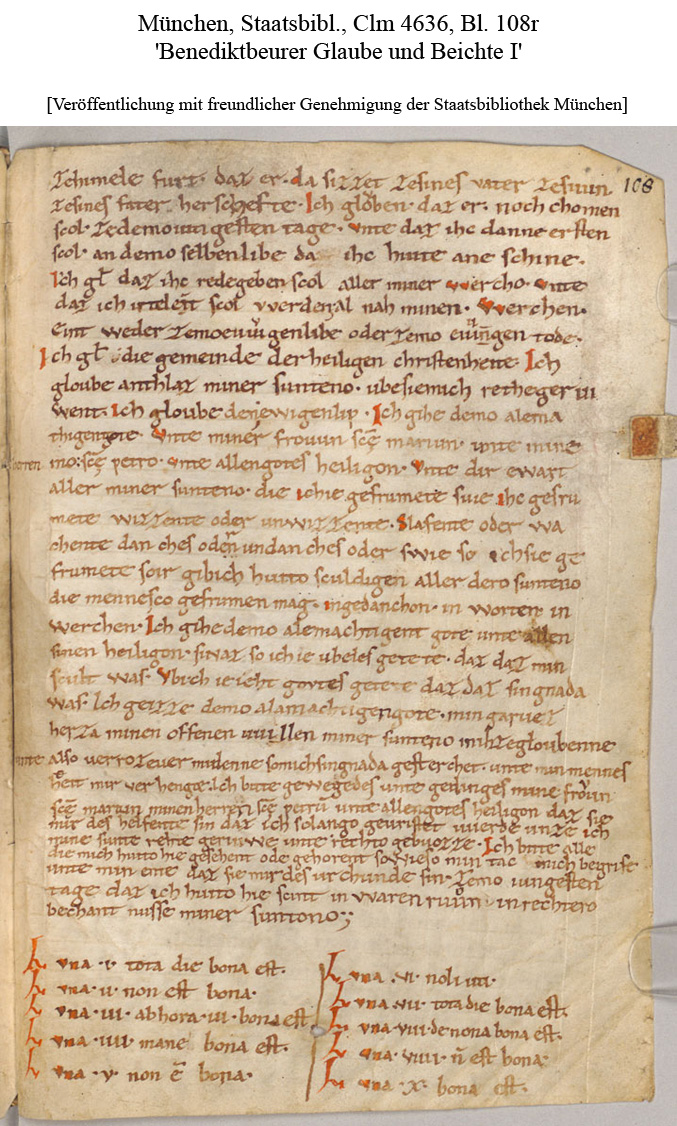 München, Staatsbibl., Clm 4636, Bl. 108r
'Benediktbeurer Glaube und Beichte I'
[Veröffentlichung mit freundlicher Genehmigung der Staatsbibliothek München]
108
zehimele fuor. daz er. da sizzet zesines vater zesiuun
zesines fater herschefte. Ich glöben. daz er. noch chomen
scol. zedemo iungesten tage. unte daz ihc danne ersten
scol. an demo selben libe da ihc hiute ane schine.
Ich gl daz ihc rede geben scol aller miner wercho. unte
daz ich scol nah minen. werchen.
weder gen libe oder zemo gen tode.
Ich gl die gemeinde der heiligen christenheite. Ich
gloube anthlaz miner sunteno. ube siemich
Ich gloube den ewigen lip. Ich gihe demo alema
thigen gote. unte miner frouun sce mariun. unte mine
sce petro. unte allen gotes heiligon. unte dir ewart
aller miner sunteno. die ichie gefrumete swie ihc gefru
mete wizzente oder unwizzente. Slafente oder wa
chente danches oder undanches oder swie so ichsie ge
frumete gibich hiuto sculdigen aller dero sunteno
die mennesco gefrumen mag. ingedanchon. in worten in
werchen. Ich gihe demo alemachtigent gote unte allen
sinen heiligon. so ich ie ubeles getete. daz daz min
sculd was. gotes getete daz daz sin gnada
was. Ich demo alamachtigen gote. min
herza minen offenen uuillen miner sunteno
unte also sin gnada unte min mennes
heit mir verhenge. Ich bitte unte mine frouun
sce mariun minen herren sce petru unte allen gotes heiligon daz sie
mir des helfente sin daz ich so lango gevristet uuerde unze ich
mine sunte rehte geriuwe unte rehto gebuozze. Ich bitte alle
die mich hiuto hie gesehent ode gehorent sowieso min tac mich begrife
unte min ente daz sie mir des urchunde sin. zemo iungesten
tage daz ich hiuto hie scunt in waren riuun. in rechtero
bechant nusse miner suntono;
Luna .i. tota die bona est.
Luna .ii. non est bona.
Luna .iii. ab hora .iii. bona est
Luna .iiii. mane bona est.
Luna .v. non e bona.
Luna .vi. noli
Luna .vii. tota die bona est.
Luna .viii. de nona bona est.
Luna .viiii. n est bona.
Luna .x. bona est.